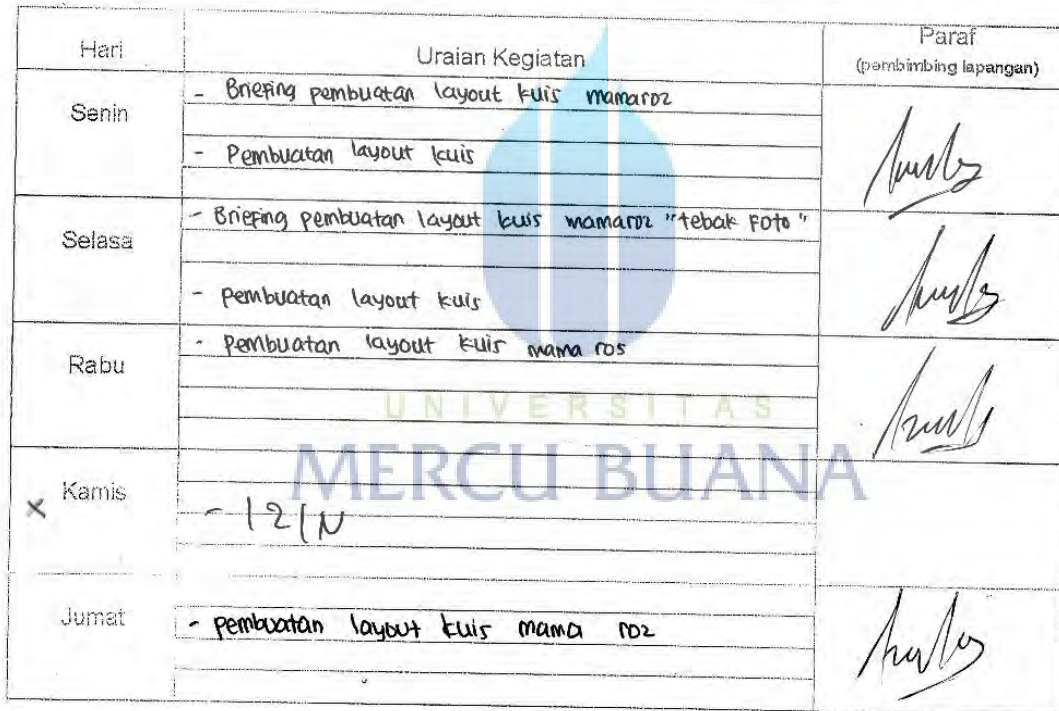 Hari
Uraian Kegiatan
Paraf
(pembimbing lapangan)
Senin
- Briefing pembuatan layout kuis mamaroz
- Pembuatan layout kuis
Selasa
- Briefing pembuatan layout kuis mamaroz "tebak Foto"
- pembuatan layout kuis
Rabu
- Pembuatan layout kuis mama ros
UNIVERSITAS
MERCU BUANA
× Kamis
- IZIN
Jumat
- pembuatan layout kuis mama roz